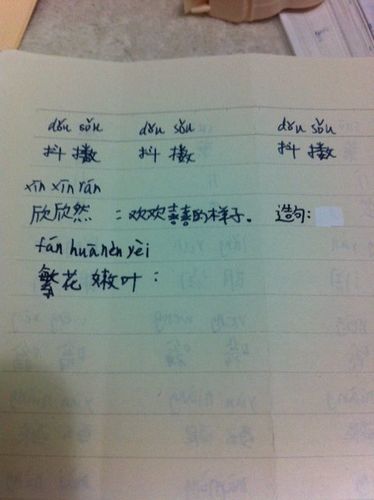 dǒu sǒu dǒu sǒu dǒu sǒu
抖擞 抖擞 抖擞
xīn xīn rán
欣欣然：欢欢喜喜的样子。 造句：
fán huā nèn yèi
繁花嫩叶：